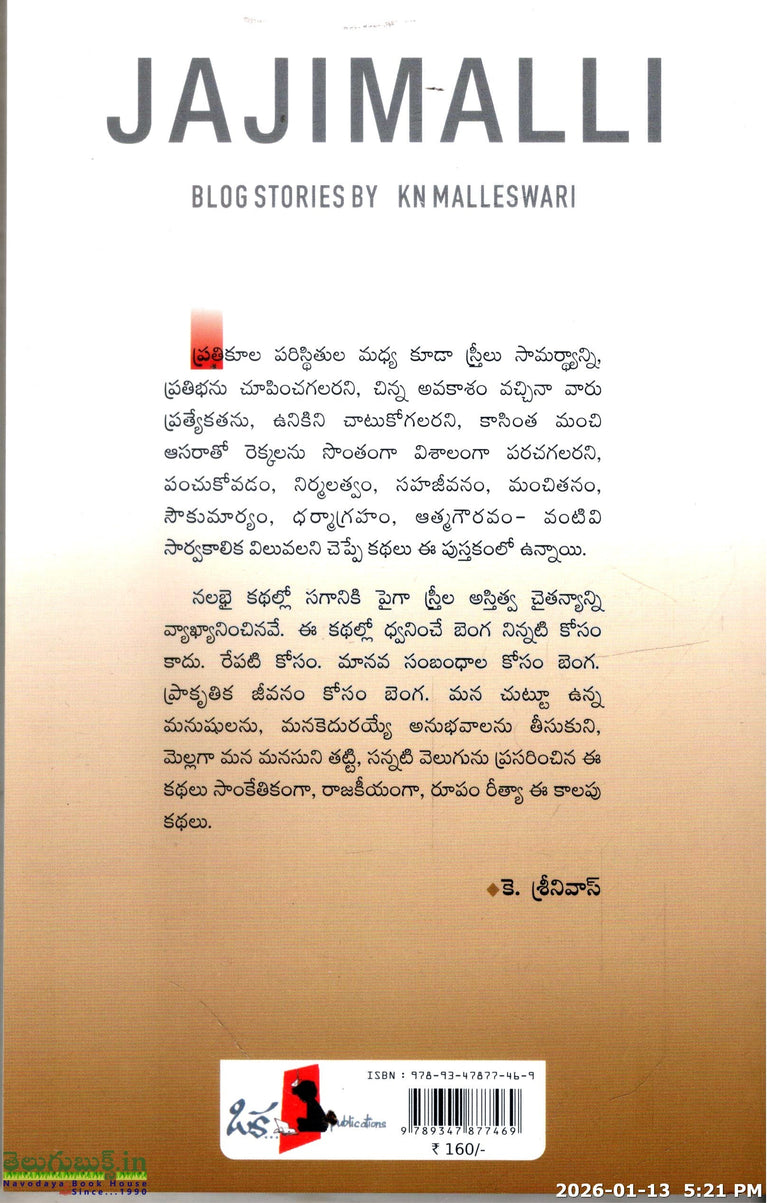 JAJIMALLI
BLOG STORIES BY KN MALLESWARI
ప్రతికూల పరిస్థితుల మధ్య కూడా స్త్రీలు సామర్థ్యాన్ని,
ప్రతిభను చూపించగలరని, చిన్న అవకాశం వచ్చినా వారు
ప్రత్యేకతను, ఉనికిని చాటుకోగలరని, కాసింత మంచి
ఆసరాతో రెక్కలను సొంతంగా విశాలంగా పరచగలరని,
పంచుకోవడం, నిర్మలత్వం, సహజీవనం, మంచితనం,
సౌకుమార్యం, ధర్మాగ్రహం, ఆత్మగౌరవం- వంటివి
సార్వకాలిక విలువలని చెప్పే కథలు ఈ పుస్తకంలో ఉన్నాయి.
నలభై కథల్లో సగానికి పైగా స్త్రీల అస్తిత్వ చైతన్యాన్ని
వ్యాఖ్యానించినవే. ఈ కథల్లో ధ్వనించే బెంగ నిన్నటి కోసం
కాదు. రేపటి కోసం. మానవ సంబంధాల కోసం బెంగ.
ప్రాకృతిక జీవనం కోసం బెంగ. మన చుట్టూ ఉన్న
మనుషులను, మనకెదురయ్యే అనుభవాలను తీసుకుని,
మెల్లగా మన మనసుని తట్టి, సన్నటి వెలుగును ప్రసరించిన ఈ
కథలు సాంకేతికంగా, రాజకీయంగా, రూపం రీత్యా ఈ కాలపు
కథలు.
కె. శ్రీనివాస్
ISBN : 978-93-47877-46-9
ఒక... Publications
9 789347 877469
₹ 160/-
తెలుగుబుక్స్.in
Navodaya Book House
Since...1990
2026-01-13 5:21 PM